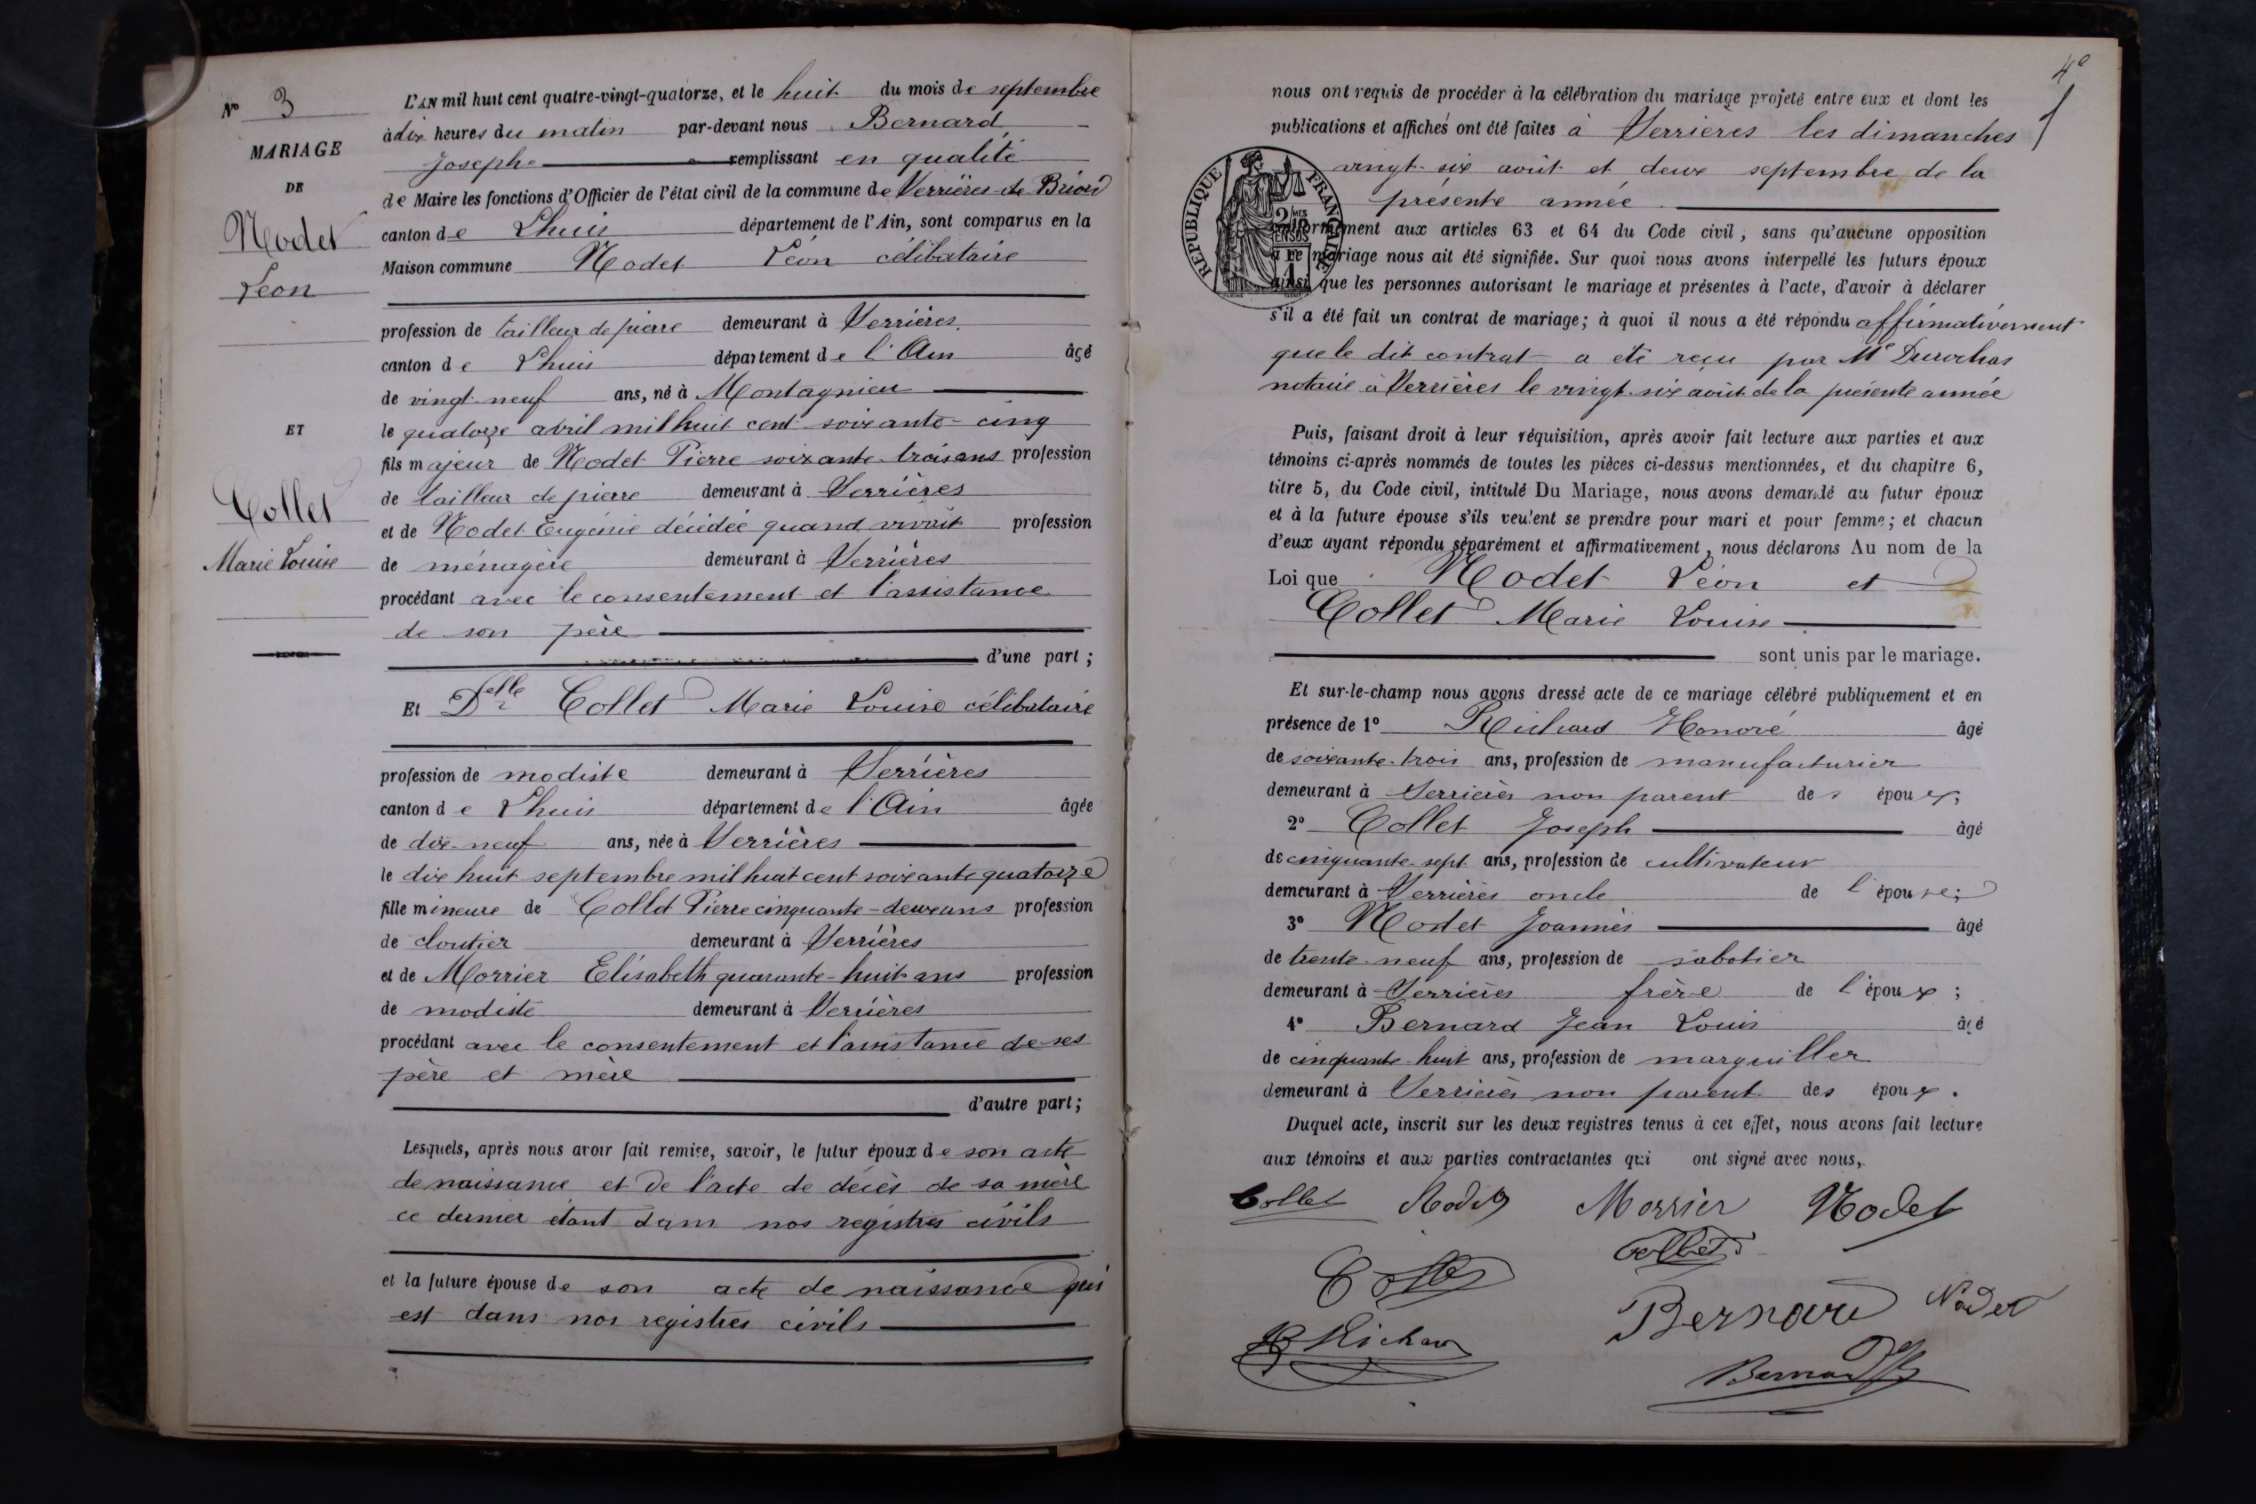 N° 3
MARIAGE
DE
Nodet
Léon
ET
Collet
Marie Louise
L'AN mil huit cent quatre-vingt-quatorze, et le huit du mois de septembre
à dix heures du matin par-devant nous Bernard
Joseph remplissant en qualité
de Maire les fonctions d'Officier de l'état civil de la commune de Verrières de Briord
canton de Lhuis département de l'Ain, sont comparus en la
Maison commune Nodet Léon célibataire
profession de tailleur de pierre demeurant à Verrières
canton de Lhuis département de l'Ain âgé
de vingt-neuf ans, né à Montagnieu
le quatorze avril mil huit cent soixante-cinq
fils majeur de Nodet Pierre soixante-trois ans profession
de tailleur de pierre demeurant à Verrières
et de Nodet Eugénie décédée quand vivait profession
de ménagère demeurant à Verrières
procédant avec le consentement et l'assistance
de son père
d'une part;
Et Delle Collet Marie Louise célibataire
profession de modiste demeurant à Verrières
canton de Lhuis département de l'Ain âgée
de dix-neuf ans, née à Verrières
le dix huit septembre mil huit cent soixante quatorze
fille mineure de Collet Pierre cinquante-deux ans profession
de cloutier demeurant à Verrières
et de Morrier Elisabeth quarante-huit ans profession
de modiste demeurant à Verrières
procédant avec le consentement et l'assistance de ses
père et mère
d'autre part;
Lesquels, après nous avoir fait remise, savoir, le futur époux de son acte
de naissance et de l'acte de décès de sa mère
ce dernier étant dans nos registres civils
et la future épouse de son acte de naissance qui
est dans nos registres civils
4e
nous ont requis de procéder à la célébration du mariage projeté entre eux et dont les
publications et affiches ont été faites à Verrières les dimanches
vingt-six août et deux septembre de la
présente année
RÉPUBLIQUE FRANÇAISE
conformément aux articles 63 et 64 du Code civil, sans qu'aucune opposition
à ce mariage nous ait été signifiée. Sur quoi nous avons interpellé les futurs époux
ainsi que les personnes autorisant le mariage et présentes à l'acte, d'avoir à déclarer
s'il a été fait un contrat de mariage; à quoi il nous a été répondu affirmativement
que le dit contrat a été reçu par Me
notaire à Verrières le vingt-six août de la présente année
Puis, faisant droit à leur réquisition, après avoir fait lecture aux parties et aux
témoins ci-après nommés de toutes les pièces ci-dessus mentionnées, et du chapitre 6,
titre 5, du Code civil, intitulé Du Mariage, nous avons demandé au futur époux
et à la future épouse s'ils veulent se prendre pour mari et pour femme; et chacun
d'eux ayant répondu séparément et affirmativement, nous déclarons Au nom de la
Loi que Nodet Léon et
Collet Marie Louise
sont unis par le mariage.
Et sur-le-champ nous avons dressé acte de ce mariage célébré publiquement et en
présence de 1° Richard Honoré âgé
de soixante-trois ans, profession de manufacturier
demeurant à Verrières non parent des époux;
2° Collet Joseph âgé
de cinquante-sept ans, profession de cultivateur
demeurant à Verrières oncle de l'épouse;
3° Nodet Joannès âgé
de trente-neuf ans, profession de sabotier
demeurant à Verrières frère de l'époux;
4° Bernard Jean Louis âgé
de cinquante-huit ans, profession de marguiller
demeurant à Verrières non parent des époux.
Duquel acte, inscrit sur les deux registres tenus à cet effet, nous avons fait lecture
aux témoins et aux parties contractantes qui ont signé avec nous,
Collet Nodet Morrier Nodet
Collet
Bernard Nodet
Richard
Bernard